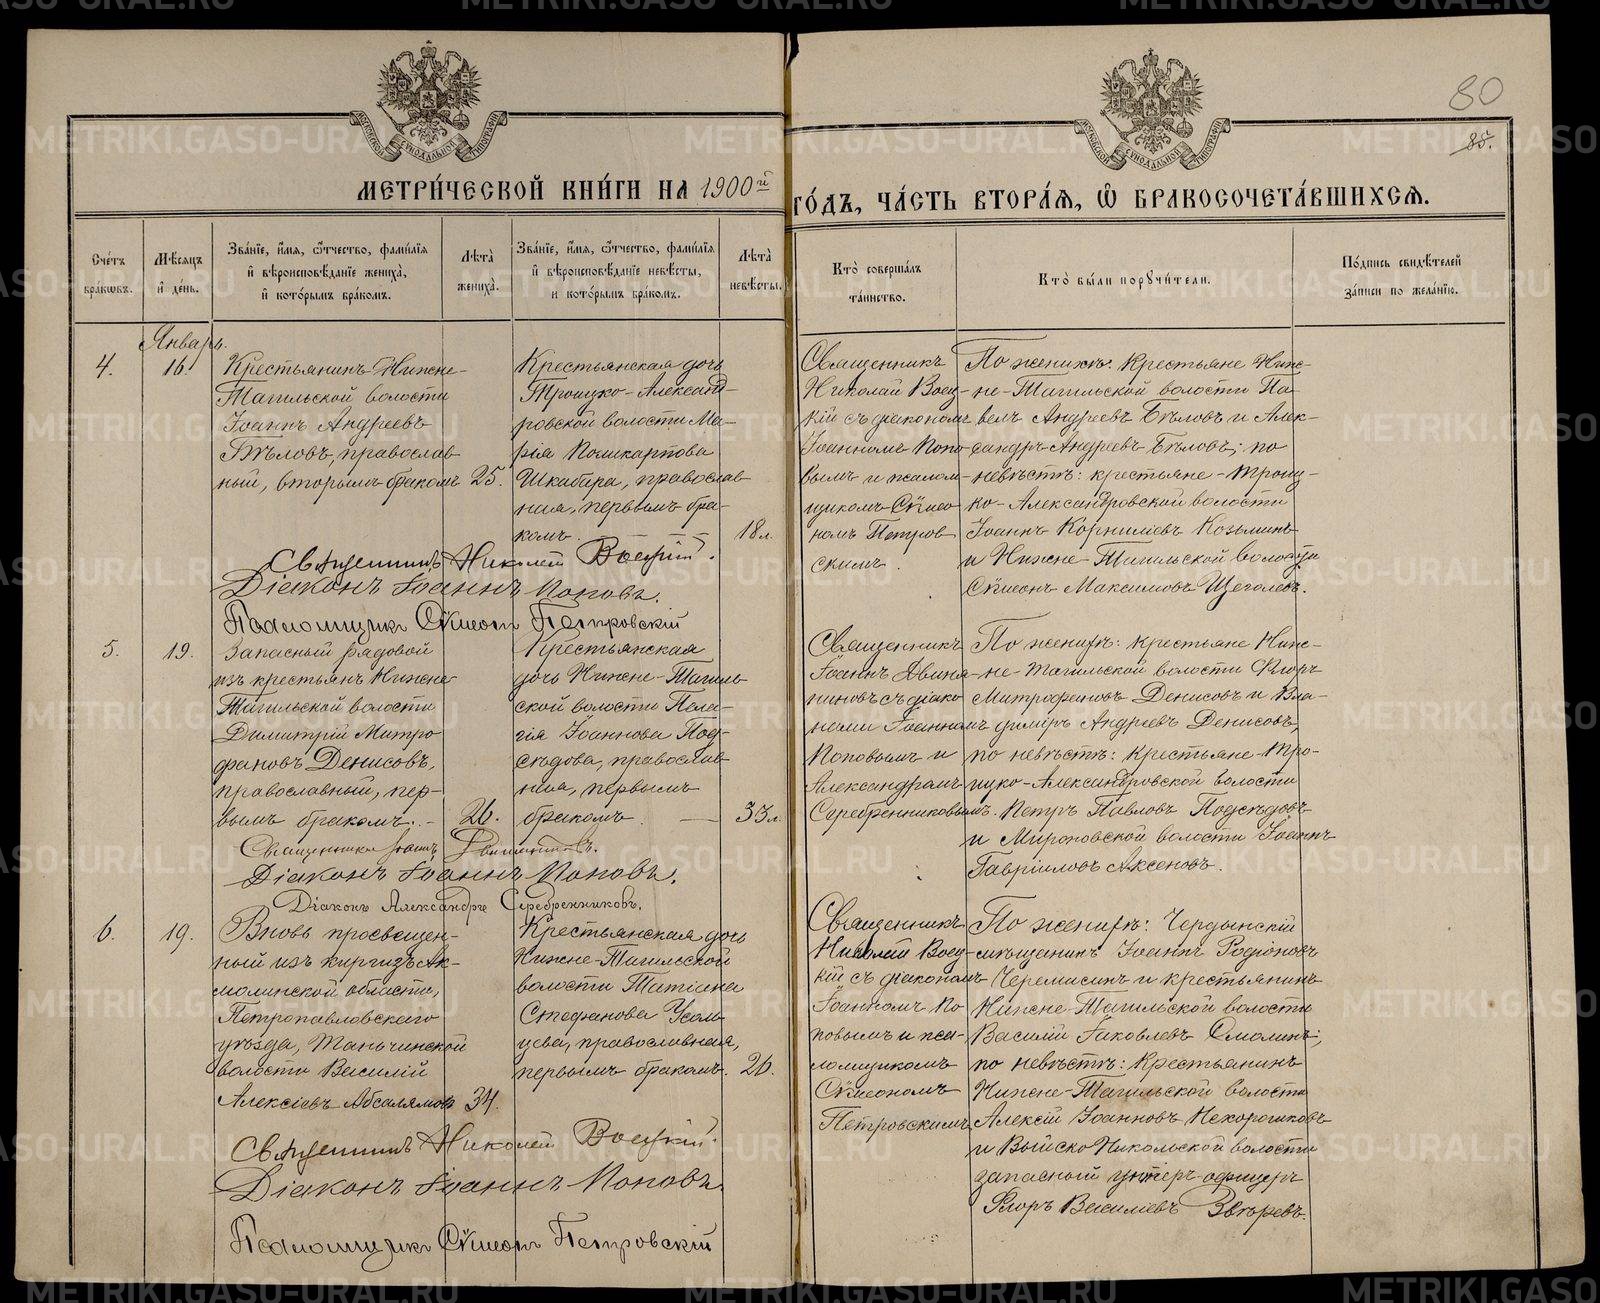 80
85.
МЕТРИ́ЧЕСКОЙ КНИ́ГИ НА 1900й ГО́ДЪ, ЧА́СТЬ ВТОРА́Я, Ѡ҆ БРАКОСОЧЕТА́ВШИХСЯ.
Сче́тъ бра́ковъ.
Мѣ́сяцъ и҆ де́нь.
Зва́нїе, и҆́мя, ѻ҆́тчество, фами́лїя и҆ вѣроисповѣ́данїе жениха̀, и҆ кото́рымъ бра́комъ.
Лѣта̀ жениха̀.
Зва́нїе, и҆́мя, ѻ҆́тчество, фами́лїя и҆ вѣроисповѣ́данїе невѣ́сты, и кото́рымъ бра́комъ.
Лѣта̀ невѣ́сты.
Кто̀ соверша́лъ та́инство.
Кто̀ бы́ли порꙋчи́тели.
По́дпись свидѣ́телей за́писи по жела́нїю.
Январь.
4.
16.
Крестьянинъ Нижне-
Тагильской волости
Іоаннъ Андреевъ
Бѣловъ, православ-
ный, вторымъ бракомъ
25.
Крестьянская дочь
Троицко-Александ-
ровской волости Ма-
рія Поликарпова
Шкабара, православ-
ная, первымъ бра-
комъ.
18 л.
Священникъ
Николай Воец-
кій съ діакономъ
Іоанномъ Попо-
вымъ и псалом-
щикомъ Сѵмео-
номъ Петров-
скимъ.
По женихѣ: крестьяне Ниж-
не-Тагильской волости Па-
велъ Андреевъ Бѣловъ и Алек-
сандръ Андреевъ Бѣловъ; по
невѣстѣ: крестьяне Троиц-
ко-Александровской волости
Іоаннъ Корниліевъ Козьминъ
и Нижне-Тагильской волости
Сѵмеонъ Максимовъ Щеголевъ.
Священникъ Николай Воецкій.
Діаконъ Іоаннъ Поповъ.
Псаломщикъ Сѵмеонъ Петровскій
5.
19.
Запасный рядовой
изъ крестьянъ Нижне-
Тагильской волости
Димитрій Митро-
фановъ Денисовъ,
православный, пер-
вымъ бракомъ.
26.
Крестьянская
дочь Нижне-Тагиль-
ской волости Пела-
гія Іоаннова Под-
сѣдова, православ-
ная, первымъ
бракомъ.
33 л.
Священникъ
Іоаннъ Двиня-
ниновъ съ діако-
нами Іоанномъ
Поповымъ и
Александромъ
Серебренниковымъ.
По женихѣ: крестьяне Ниж-
не-Тагильской волости Ѳеоръ
Митрофановъ Денисовъ и Вла-
димiръ Андреевъ Денисовъ,
по невѣстѣ: крестьяне Тро-
ицко-Александровской волости
Петръ Павловъ Подсѣдовъ
и Мироновской волости Іоаннъ
Гавріиловъ Аксеновъ.
Священникъ Іоаннъ
Діаконъ Іоаннъ Поповъ.
Діаконъ Александръ Серебренниковъ.
6.
19.
Вновь просвещен-
ный изъ киргизъ Ак-
молинской области,
Петропавловскаго
уѣзда, Таньчинской
волости Василій
Алексіевъ Абсалямовъ
34.
Крестьянская дочь
Нижне-Тагильской
волости Татіана
Стефанова Усоль-
цева, православная,
первымъ бракомъ.
26.
Священникъ
Николай Воец-
кій съ діакономъ
Іоанномъ По-
повымъ и пса-
ломщикомъ
Сѵмеономъ
Петровскимъ
По женихѣ: Чердынскій
мѣщанинъ Іоаннъ Родіоновъ
Черемисинъ и крестьянинъ
Нижне-Тагильской волости
Василій Іаковлевъ Смолинъ;
по невѣстѣ: крестьянинъ
Нижне-Тагильской волости
Алексій Іоанновъ Нехорошковъ
и Выйско-Никольской волости
запасный унтеръ-офицеръ
Ѳеоръ Василіевъ Звѣревъ.
Священникъ Николай Воецкій.
Діаконъ Іоаннъ Поповъ.
Псаломщикъ Сѵмеонъ Петровскій
METRIKI.GASO-URAL.RU